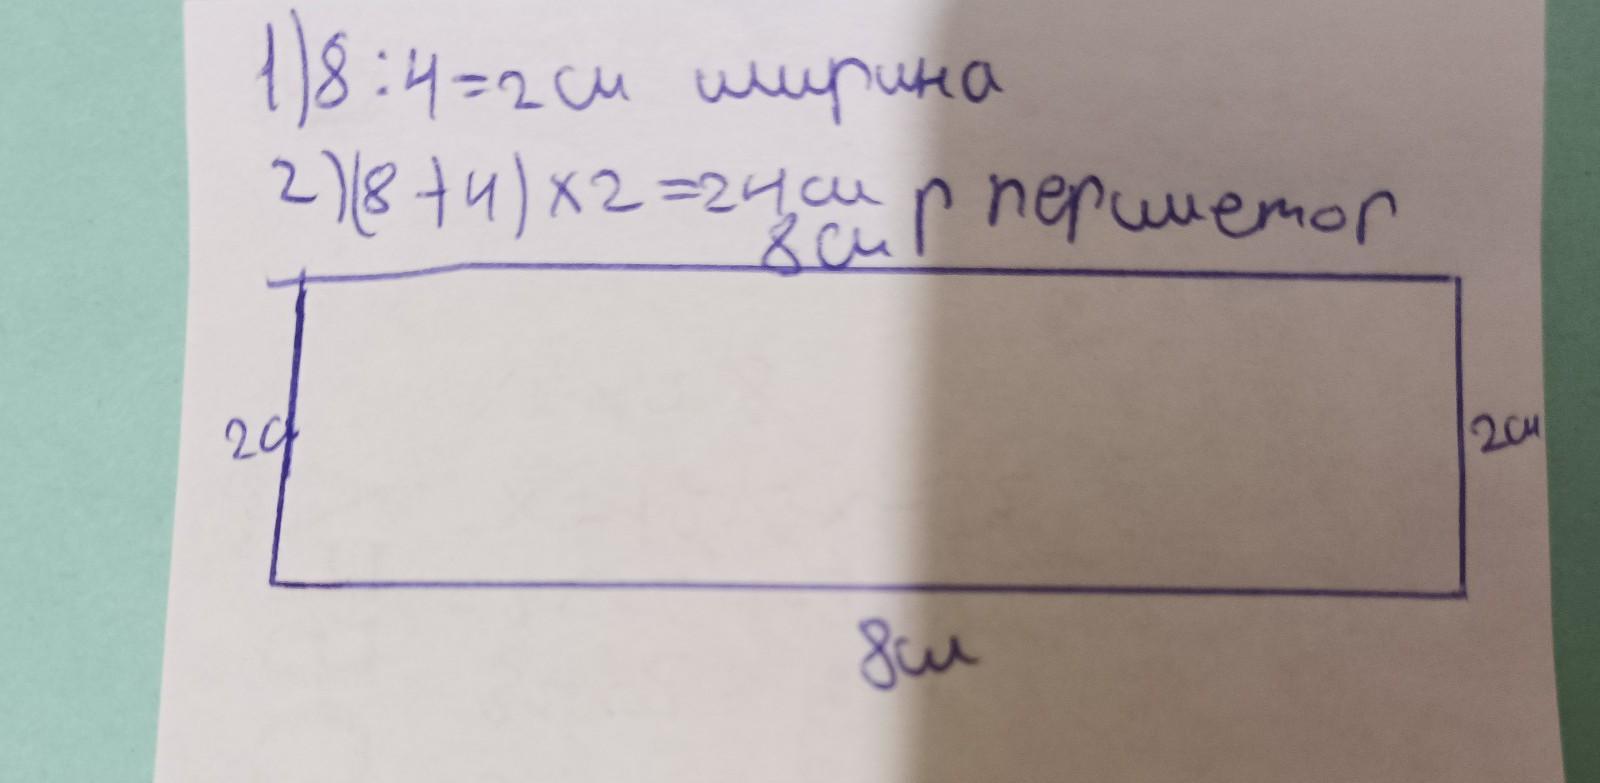 1) 8 : 4 = 2 см ширина
2) (8 + 4) × 2 = 24 см р периметор
8 см
2с
2 см
8 см